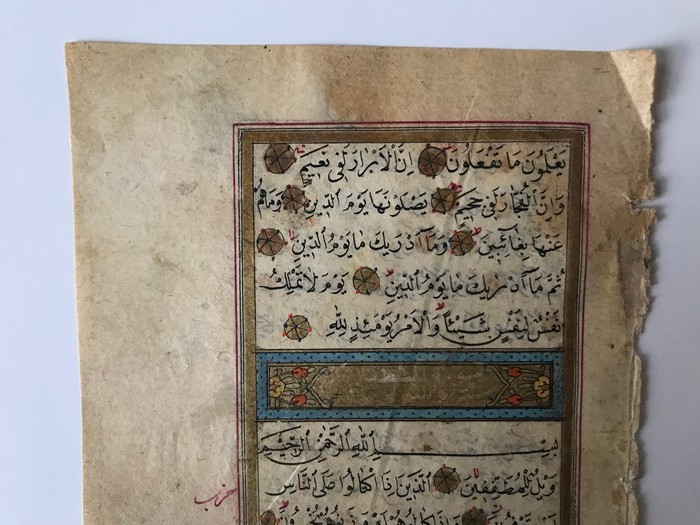 يَعْلَمُونَ مَا تَفْعَلُونَ اِنَّ الْاَبْرَارَ لَفٖى نَعٖيمٍ
وَاِنَّ الْفُجَّارَ لَفٖى جَحٖيمٍ يَصْلَوْنَهَا يَوْمَ الدّٖينِ وَمَا هُمْ
عَنْهَا بِغَٓائِبٖينَ وَمَٓا اَدْرٰيكَ مَا يَوْمُ الدّٖينِ
ثُمَّ مَٓا اَدْرٰيكَ مَا يَوْمُ الدّٖينِ يَوْمَ لَا تَمْلِكُ
نَفْسٌ لِنَفْسٍ شَيْئًا وَالْاَمْرُ يَوْمَئِذٍ لِلّٰهِ
بِسْمِ اللّٰهِ الرَّحْمٰنِ الرَّحٖيمِ
وَيْلٌ لِلْمُطَفِّفٖينَ اَلَّذٖينَ اِذَا اكْتَالُوا عَلَى النَّاسِ
حزب